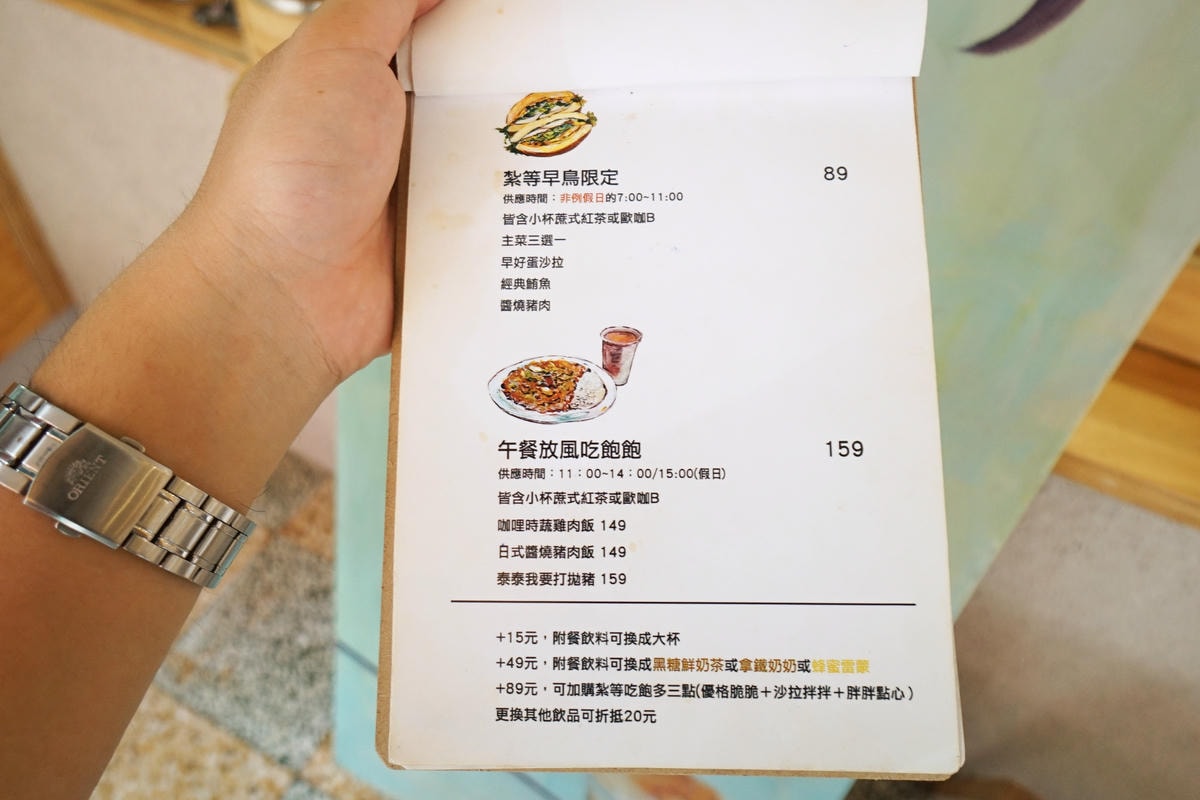 紮等早鳥限定 89
供應時間：非例假日的7:00~11:00
皆含小杯蔗式紅茶或歐咖B
主菜三選一
早好蛋沙拉
經典鮪魚
醬燒豬肉
午餐放風吃飽飽 159
供應時間：11：00~14：00/15:00(假日)
皆含小杯蔗式紅茶或歐咖B
咖哩時蔬雞肉飯 149
日式醬燒豬肉飯 149
泰泰我要打拋豬 159
+15元，附餐飲料可換成大杯
+49元，附餐飲料可換成黑糖鮮奶茶或拿鐵奶奶或蜂蜜雷蒙
+89元，可加購紮等吃飽多三點(優格脆脆＋沙拉拌拌＋胖胖點心）
更換其他飲品可折抵20元
ORIENT